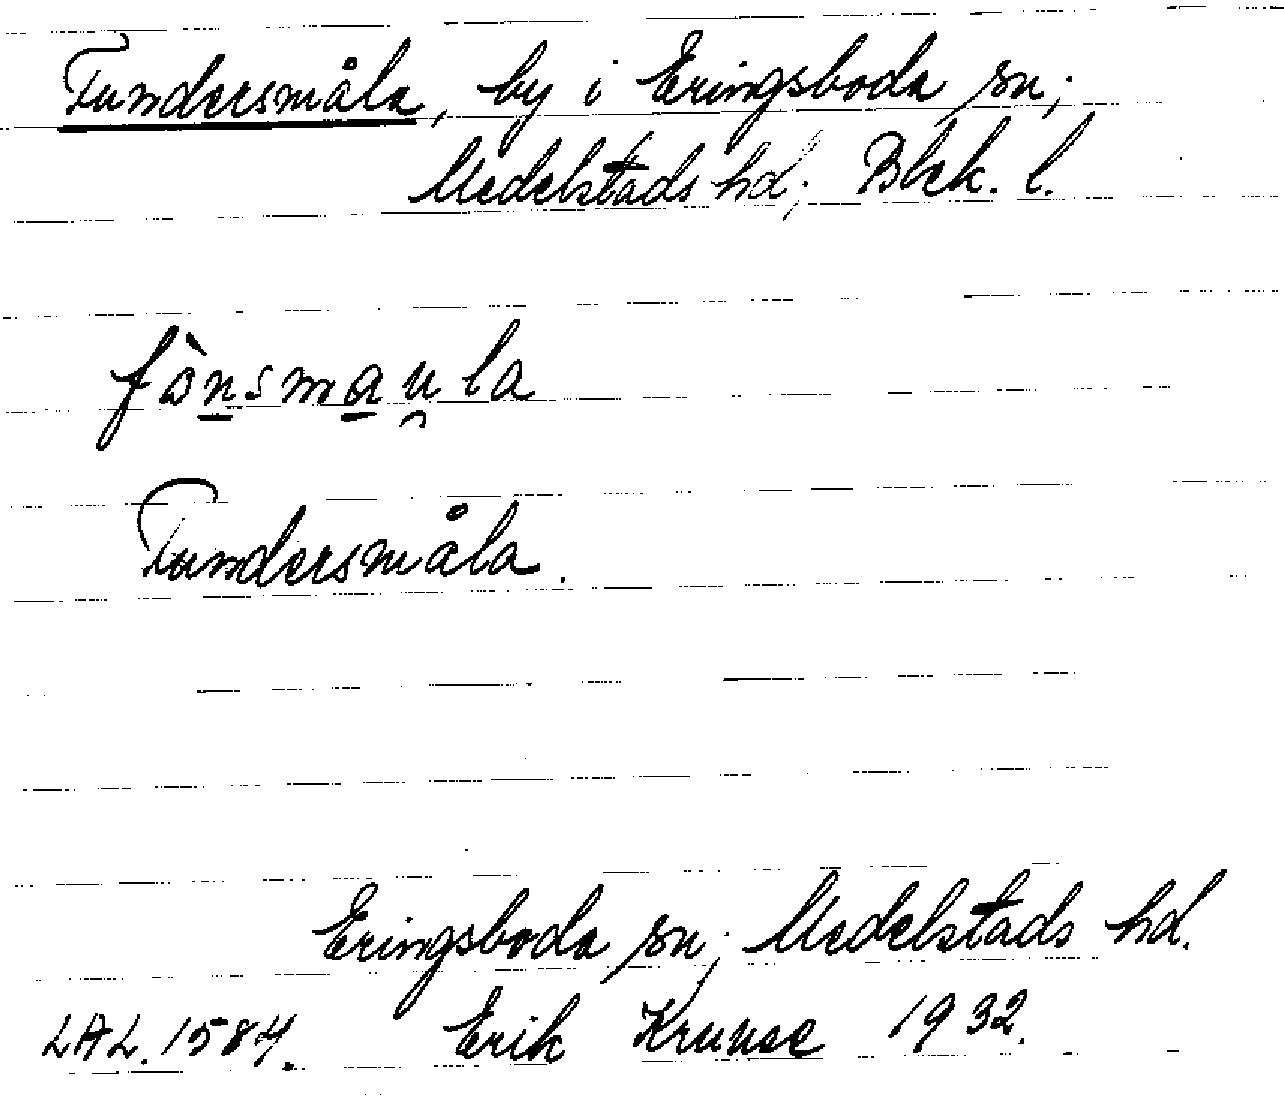 Fundersmåla, by i Eringsboda sn;
Medelstads hd; Blek. l.
fònsmau̯la
Fundersmåla.
Eringsboda sn; Medelstads hd.
LAL. 1584. Erik Kruuse 1932.